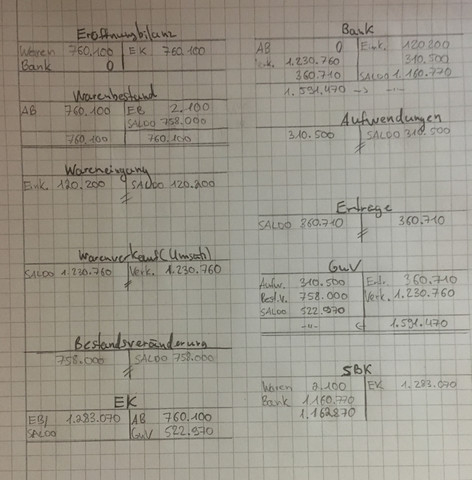 Eröffnungsbilanz
Waren 760.100 EK 760.100
Bank 0
Warenbestand
AB 760.100 EB 2.100
SALDO 758.000
760.100 760.100
Wareneingang
Eink. 120.200 SALDO 120.200
Warenverkauf (Umsatz)
SALDO 1.230.760 Verk. 1.230.760
Bestandsveränderung
758.000 SALDO 758.000
EK
EB/ 1.283.070 AB 760.100
SALDO GuV 522.970
Bank
AB 0 Eink. 120.200
1.230.760 310.500
360.710 SALDO 1.160.770
1.591.470 -> -..-
Aufwendungen
310.500 SALDO 310.500
Erträge
SALDO 360.710 360.710
GuV
Aufw. 310.500 Ertr. 360.710
Best.v. 758.000 Verk. 1.230.760
SALDO 522.970
-..- 1.591.470
SBK
Waren 2.100 EK 1.283.070
Bank 1.160.770
1.162.870